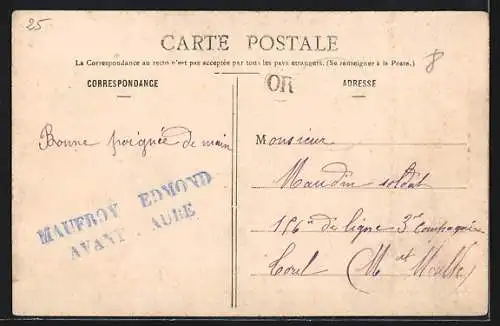 25
CARTE POSTALE
La Correspondance au recto n'est pas acceptée par tous les pays étrangers. (Se renseigner à la Poste.)
CORRESPONDANCE
OR
ADRESSE
Bonne poignée de main
MAUFROY EDMOND
AVANT . AUBE
Monsieur
Maudin soldat
156e de ligne 3e Compagnie
Toul (M et Mlle)